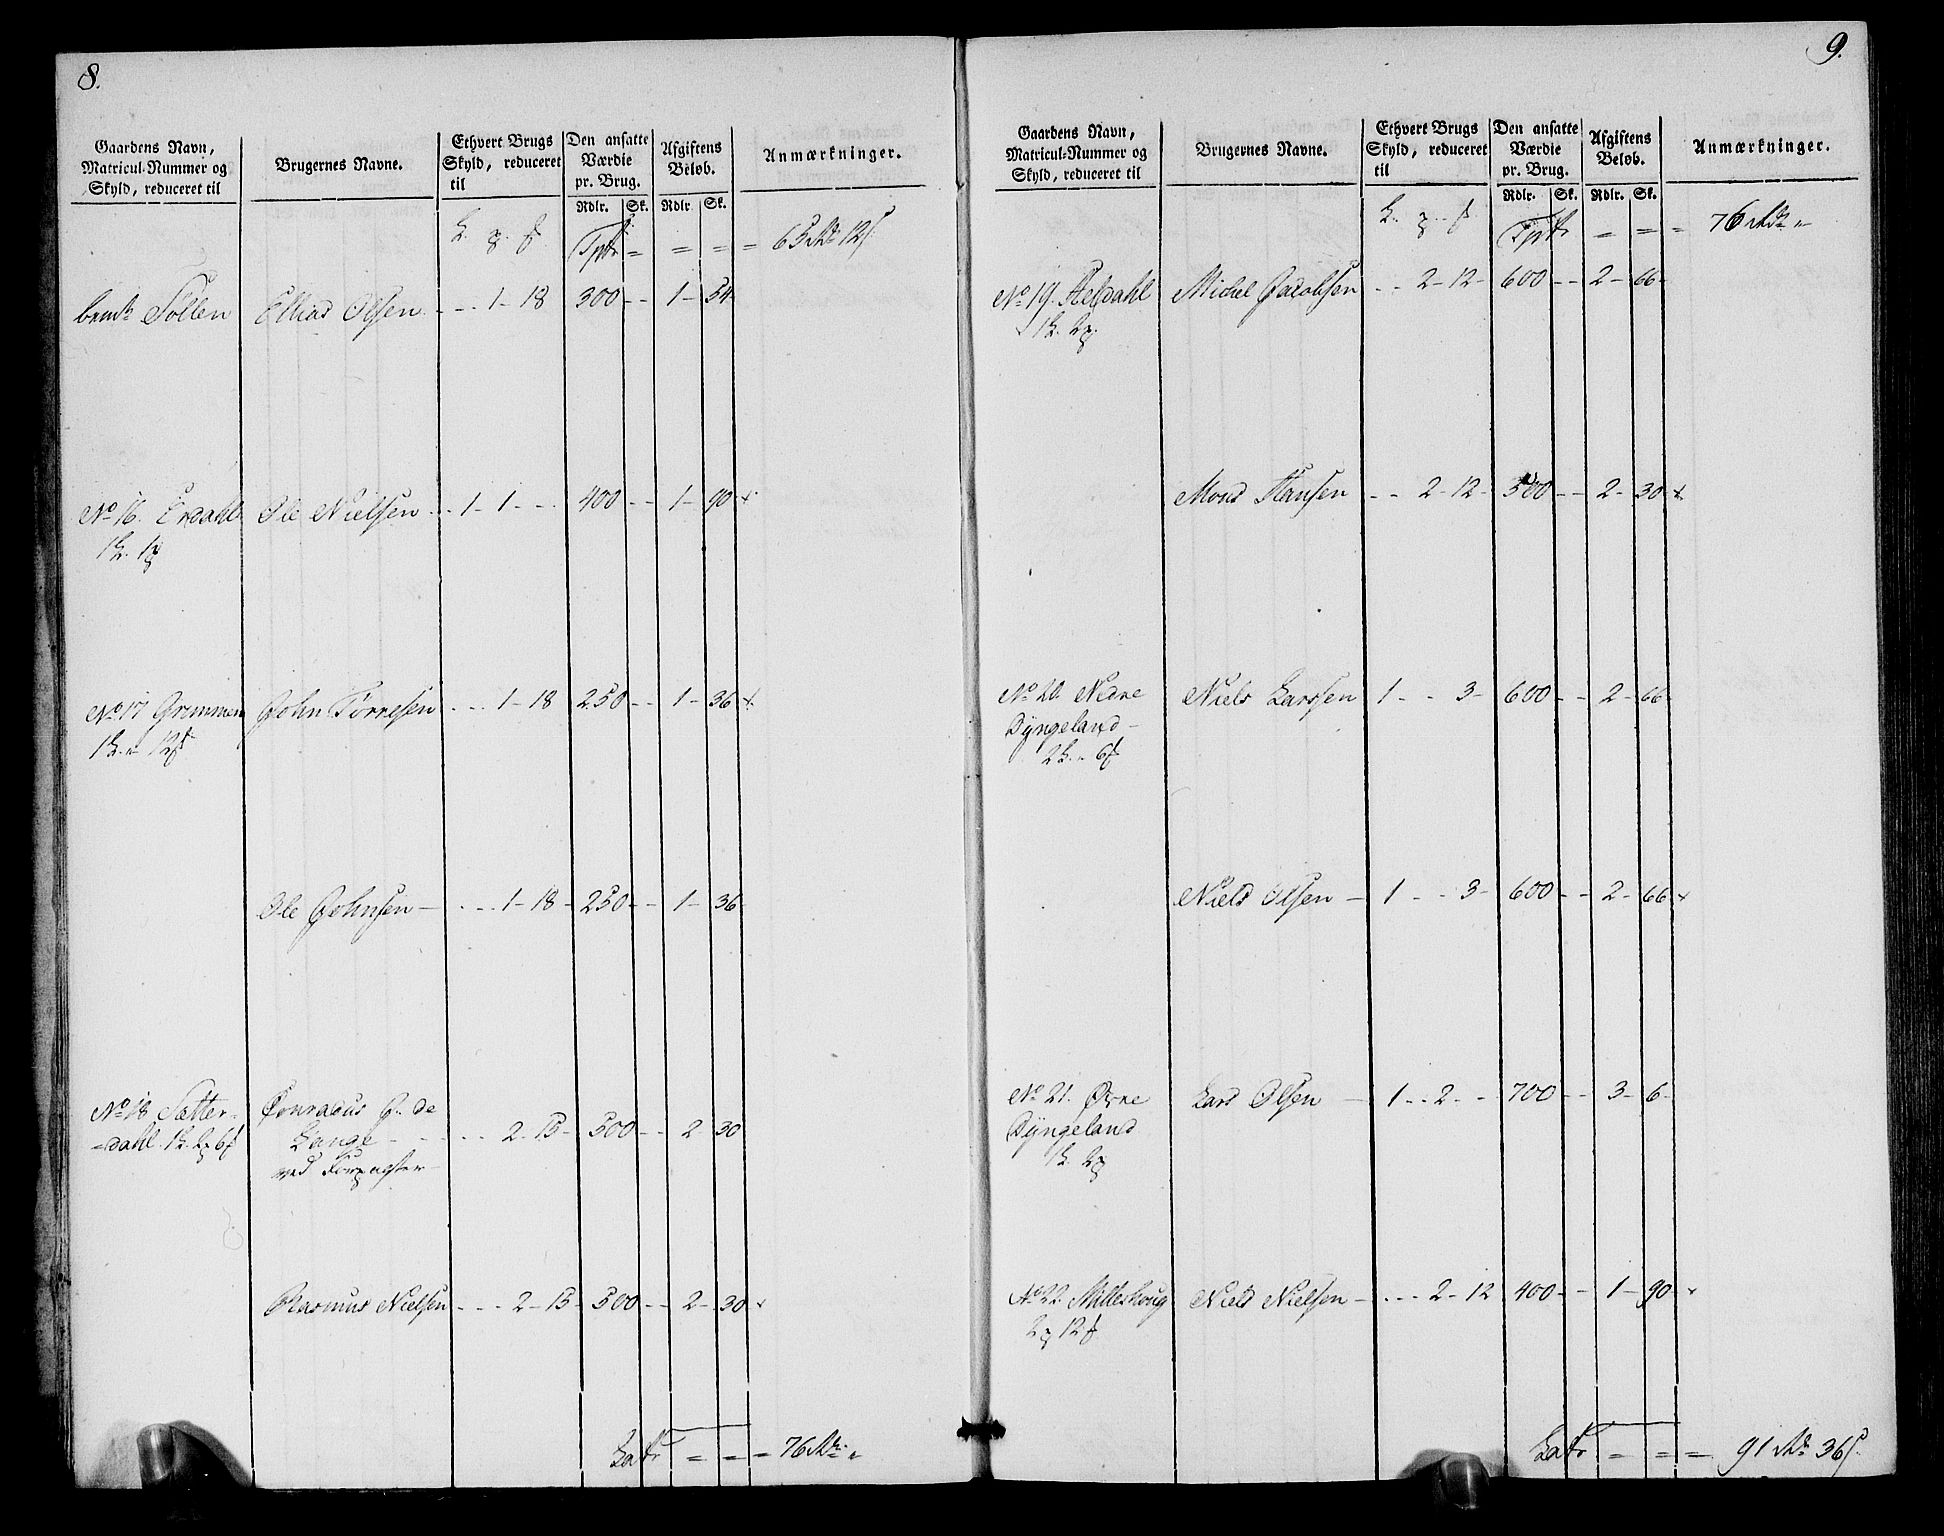 8.
Gaardens Navn,
Matricul-Nummer og
Skyld, reduceret til
Brugernes Navne.
Ethvert Brugs
Skyld, reduceret
til
Den ansatte
Værdie
pr. Brug.
Afgiftens
Beløb.
Anmærkninger.
Rdlr. Sk. Rdlr. Sk.
Tptr = = = = 65 Rdr 12 s
Tøllen Elliad Olsen - - - 1 - 18 300 - - 1 - 54
No 16. Erdahl Ole Nielsen - - 1 - 1 - - - 400 - - 1 - 90 x
No 17 Grimmen John Torresen - - - 1 - 18 - 250 - - 1 - 36 x
Ole Johnsen - - - - 1 - 18 - 250 - - 1 - 36
No 18 Sætter- Conradus G. de
=dahl. Lange - - - - 2 - 15 - 500 - - 2 - 30
ved Forpagter -
Rasmus Nielsen - - - 2 - 15 - 500 - - 2 - 30 x
Latr = = = 76 Rdr "
9.
Gaardens Navn,
Matricul-Nummer og
Skyld, reduceret til
Brugernes Navne.
Ethvert Brugs
Skyld, reduceret
til
Den ansatte
Værdie
pr. Brug.
Afgiftens
Beløb.
Anmærkninger.
Rdlr. Sk. Rdlr. Sk.
Tptr = = = 76 Rdr "
No 19. Helldahl Michel Jacobsen - - 2 - 12 - 600 - - 2 - 66 -
Mons Hansen - - 2 - 12 - 500 - - 2 - 30 x
No 20. Nedre Niels Larssen 1 - - 3 - 600 - - 2 - 66 -
Dyngeland -
Niels Olsen - 1 - - 3 - 600 - - 2 - 66 x
No 21. Øvre Lars Olsen - 1 - - 2 - - 700 - - 3 - 6 -
Dyngeland
No 22. Milleshoug Niels Nielsen - - - - 2 - 12 400 - - 1 - 90 x
Latr = = = 91 Rdr 36 s